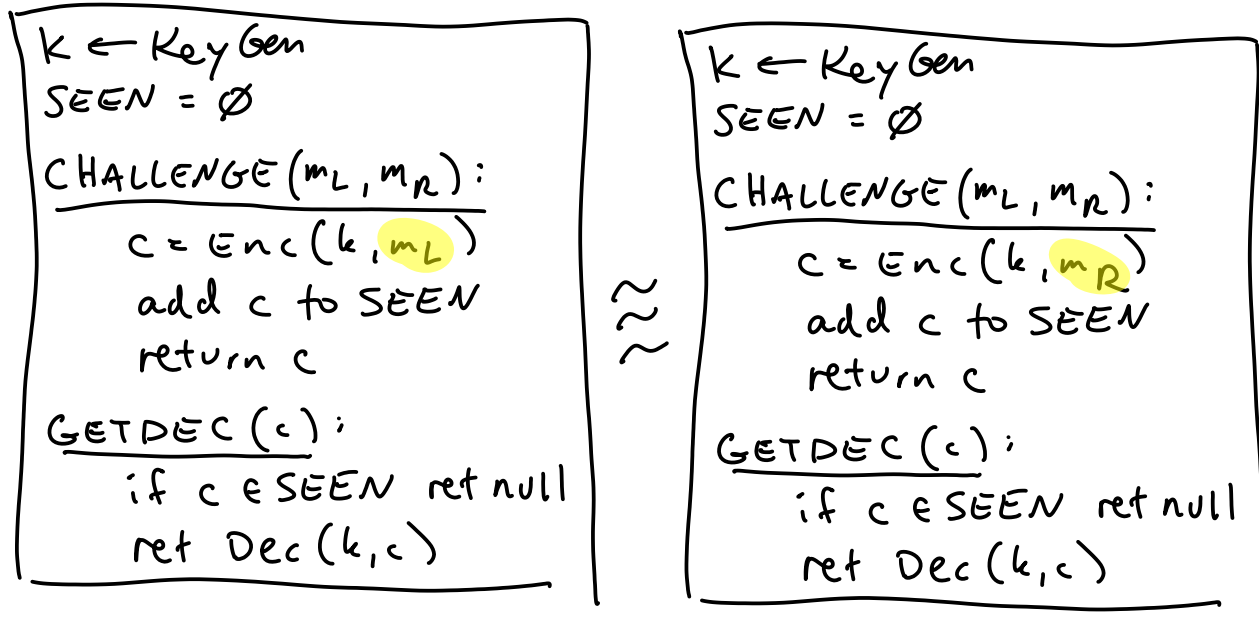 k ← KeyGen
SEEN = ∅
CHALLENGE(m_L, m_R):
c = Enc(k, m_L)
add c to SEEN
return c
GETDEC(c):
if c ∈ SEEN ret null
ret Dec(k,c)
≈
k ← KeyGen
SEEN = ∅
CHALLENGE(m_L, m_R):
c = Enc(k, m_R)
add c to SEEN
return c
GETDEC(c):
if c ∈ SEEN ret null
ret Dec(k,c)